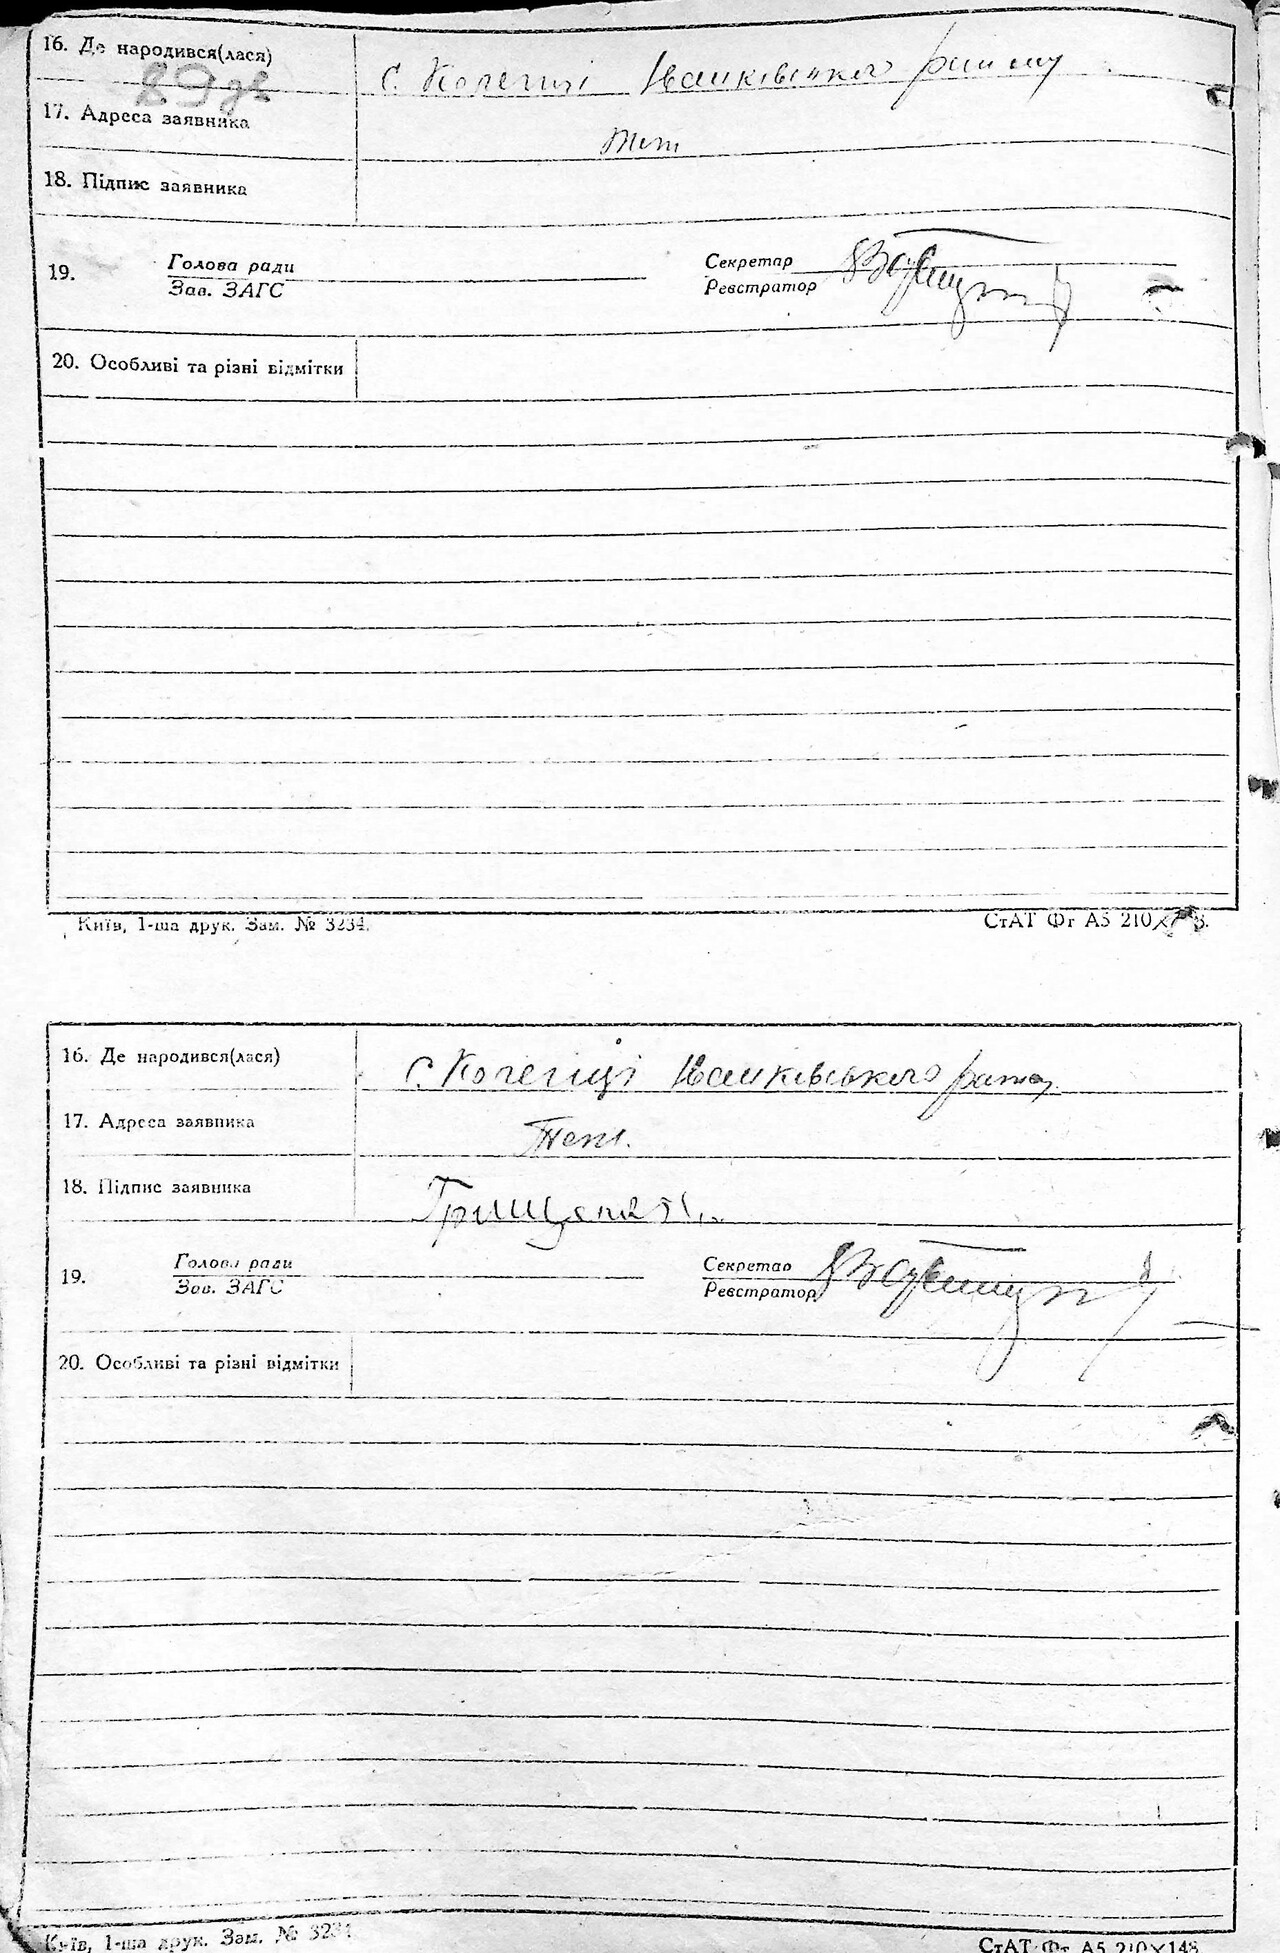 16. Де народився(лася)
с. Коленці Іванківського району
29 зв
17. Адреса заявника
теж
18. Підпис заявника
19.
Голова ради
Зав. ЗАГС
Секретар
Реєстратор
20. Особливі та різні відмітки
Київ, 1-ша друк. Зам. № 3234.
СтАТ Фг А5 210×148.
16. Де народився(лася)
с. Коленці Іванківського району
17. Адреса заявника
Теж.
18. Підпис заявника
19.
Голова ради
Зав. ЗАГС
Секретар
Реєстратор
20. Особливі та різні відмітки
Київ, 1-ша друк. Зам. № 3234
СтАТ Фг А5 210×148